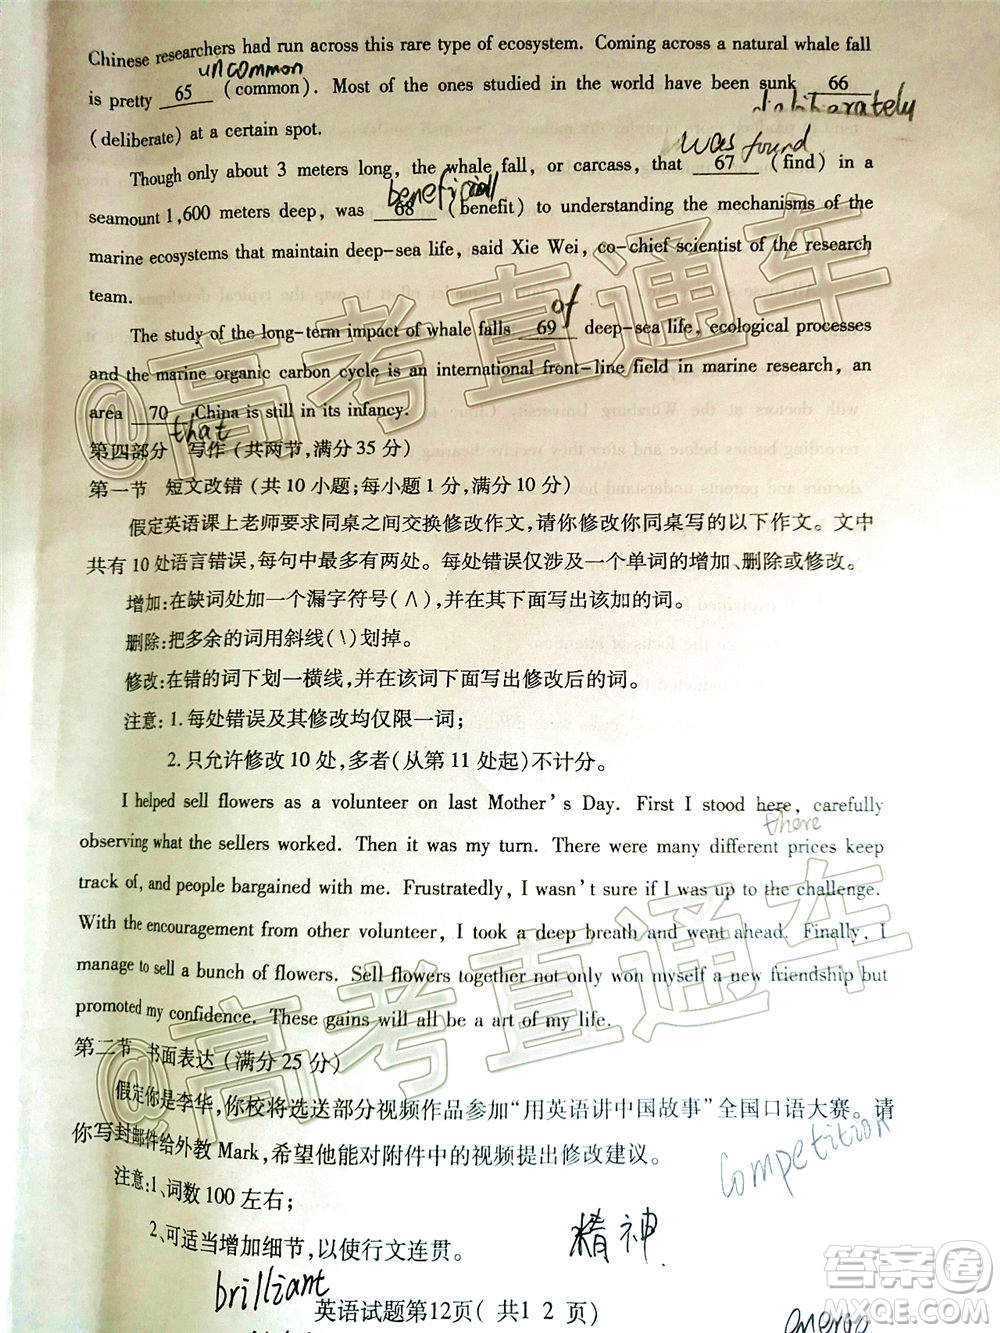 Chinese researchers had run across this rare type of ecosystem. Coming across a natural whale fall
uncommon
is pretty 65 (common). Most of the ones studied in the world have been sunk 66
deliberately
(deliberate) at a certain spot.
was found
Though only about 3 meters long, the whale fall, or carcass, that 67 (find) in a
beneficial
seamount 1,600 meters deep, was 68 (benefit) to understanding the mechanisms of the
marine ecosystems that maintain deep-sea life, said Xie Wei, co-chief scientist of the research
team.
of
The study of the long-term impact of whale falls 69 deep-sea life, ecological processes
and the marine organic carbon cycle is an international front-line field in marine research, an
area 70 China is still in its infancy.
that
第四部分 写作(共两节,满分35分)
第一节 短文改错(共10小题;每小题1分,满分10分)
假定英语课上老师要求同桌之间交换修改作文,请你修改你同桌写的以下作文。文中
共有10处语言错误,每句中最多有两处。每处错误仅涉及一个单词的增加、删除或修改。
增加:在缺词处加一个漏字符号(∧),并在其下面写出该加的词。
删除:把多余的词用斜线(\)划掉。
修改:在错的词下划一横线,并在该词下面写出修改后的词。
注意:1.每处错误及其修改均仅限一词;
2.只允许修改10处,多者(从第11处起)不计分。
I helped sell flowers as a volunteer on last Mother's Day. First I stood here, carefully
there
observing what the sellers worked. Then it was my turn. There were many different prices keep
track of, and people bargained with me. Frustratedly, I wasn't sure if I was up to the challenge.
With the encouragement from other volunteer, I took a deep breath and went ahead. Finally, I
manage to sell a bunch of flowers. Sell flowers together not only won myself a new friendship but
promoted my confidence. These gains will all be a art of my life.
第二节 书面表达(满分25分)
假定你是李华,你校将选送部分视频作品参加“用英语讲中国故事”全国口语大赛。请
你写封邮件给外教Mark,希望他能对附件中的视频提出修改建议。
competition
注意:1、词数100左右;
2、可适当增加细节,以使行文连贯。
精神
brilliant
英语试题第12页( 共1 2 页)
@高考直通车
@高考直通车
答案圈
MXQE.COM